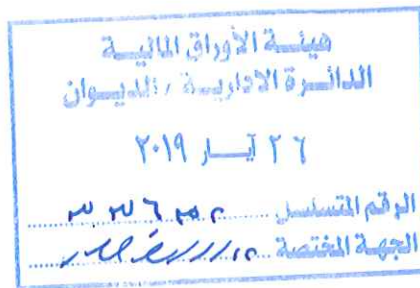 هيئة الأوراق المالية
الدائرة الادارية / الديوان
٢٦ آيار ٢٠١٩
الرقم المتسلسل
الجهة المختصة